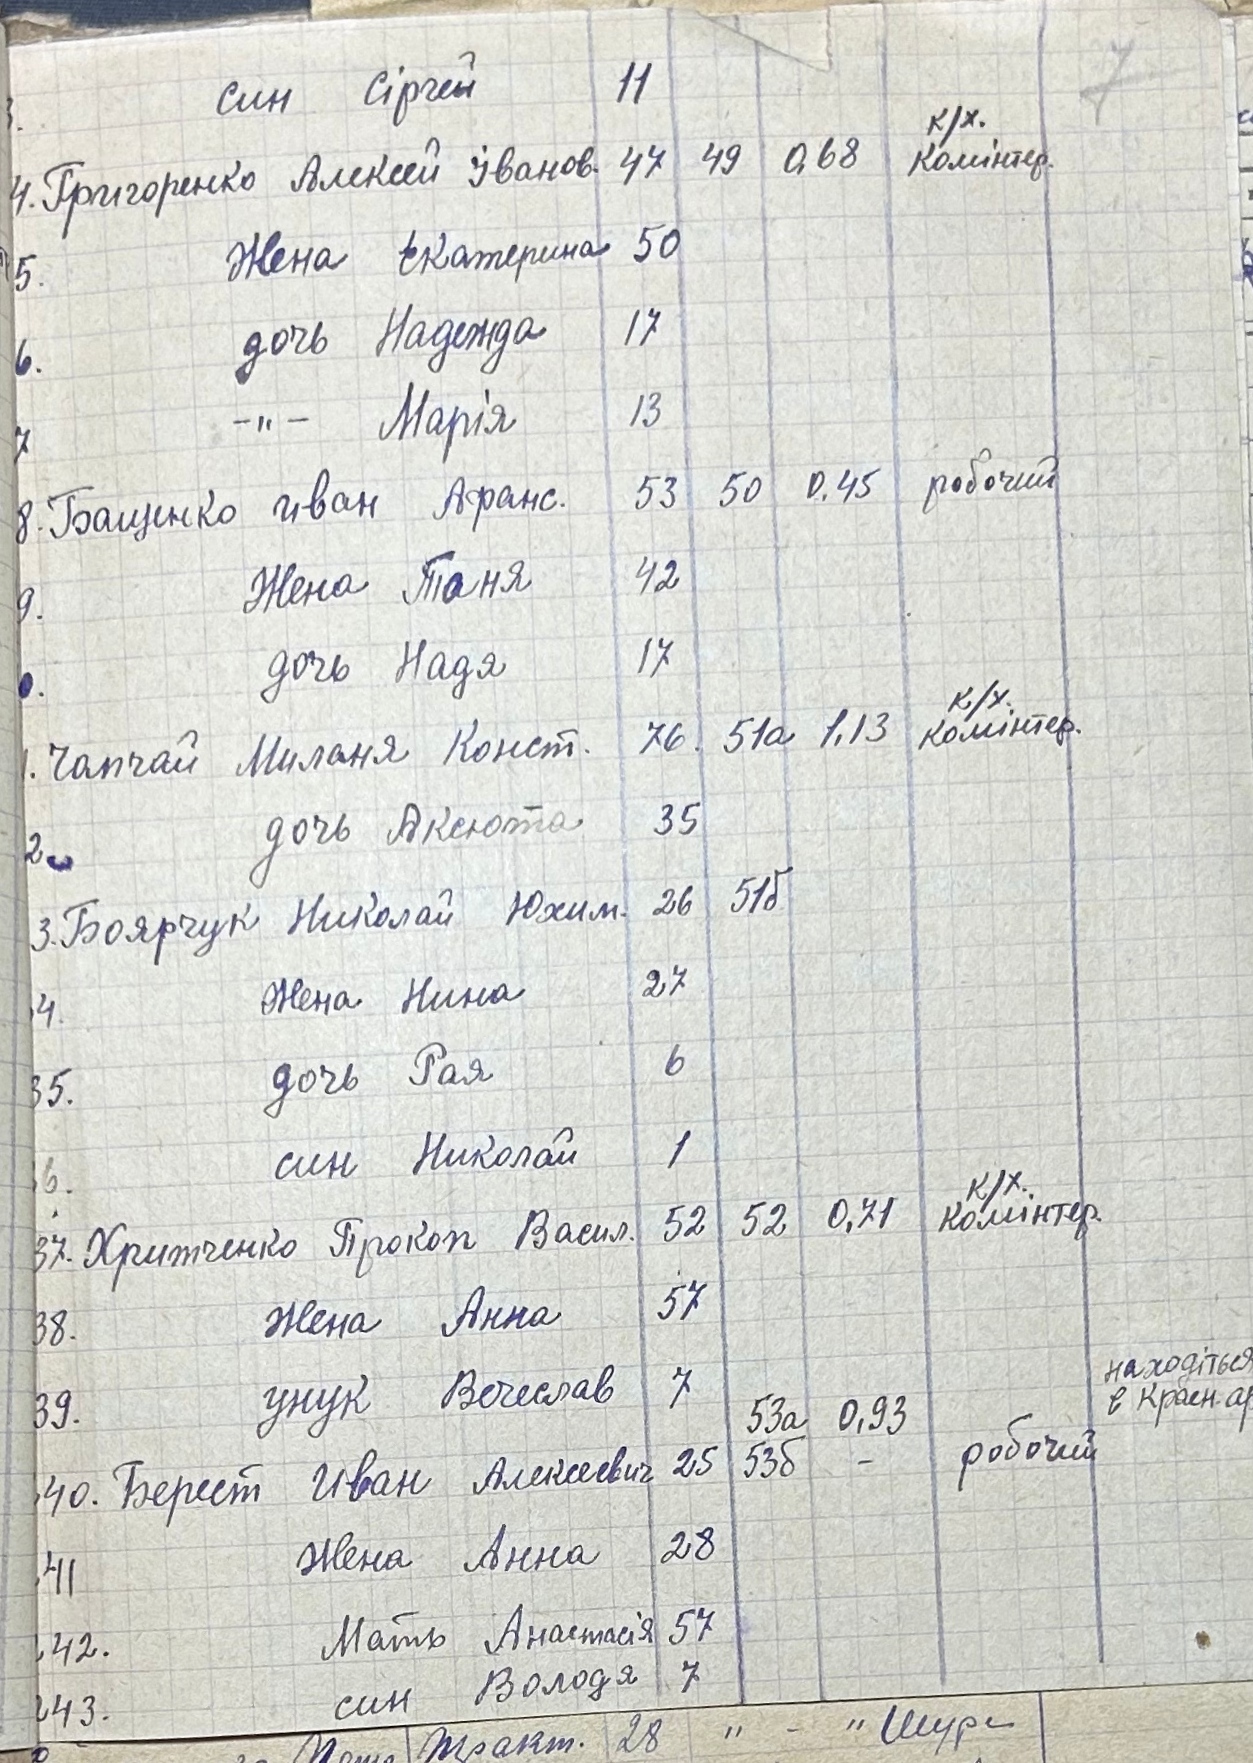 7
3. син Сіргей 11
к/х.
4. Григоренко Алексей Іванов. 47 49 0,68 Комінтер.
5. Жена Екатерина 50
6. дочь Надежда 17
7 -"- Марія 13
8. Бащенко Иван Афанс. 53 50 0,45 робочий
9. Жена Таня 42
0. дочь Надя 17
к/х.
1. Чапчай Миланя Конст. 76. 51а 1,13 Комінтер.
2. дочь Аксюта 35
3. Боярчук Николай Юхим. 26 51б
4. Жена Нина 27
35. дочь Рая 6
6. син Николай 1
к/х.
37. Хритченко Прокоп Васил. 52 52 0,71 Комінтер.
38. Жена Анна 57
находіться
39. унук Вечеслав 7 53а 0,93 в Красн. ар
40. Берест Иван Алексеевич 25 53б - робочий
41 Жена Анна 28
42. Мать Анастасія 57
43. син Володя 7
тракт. 28 " - "